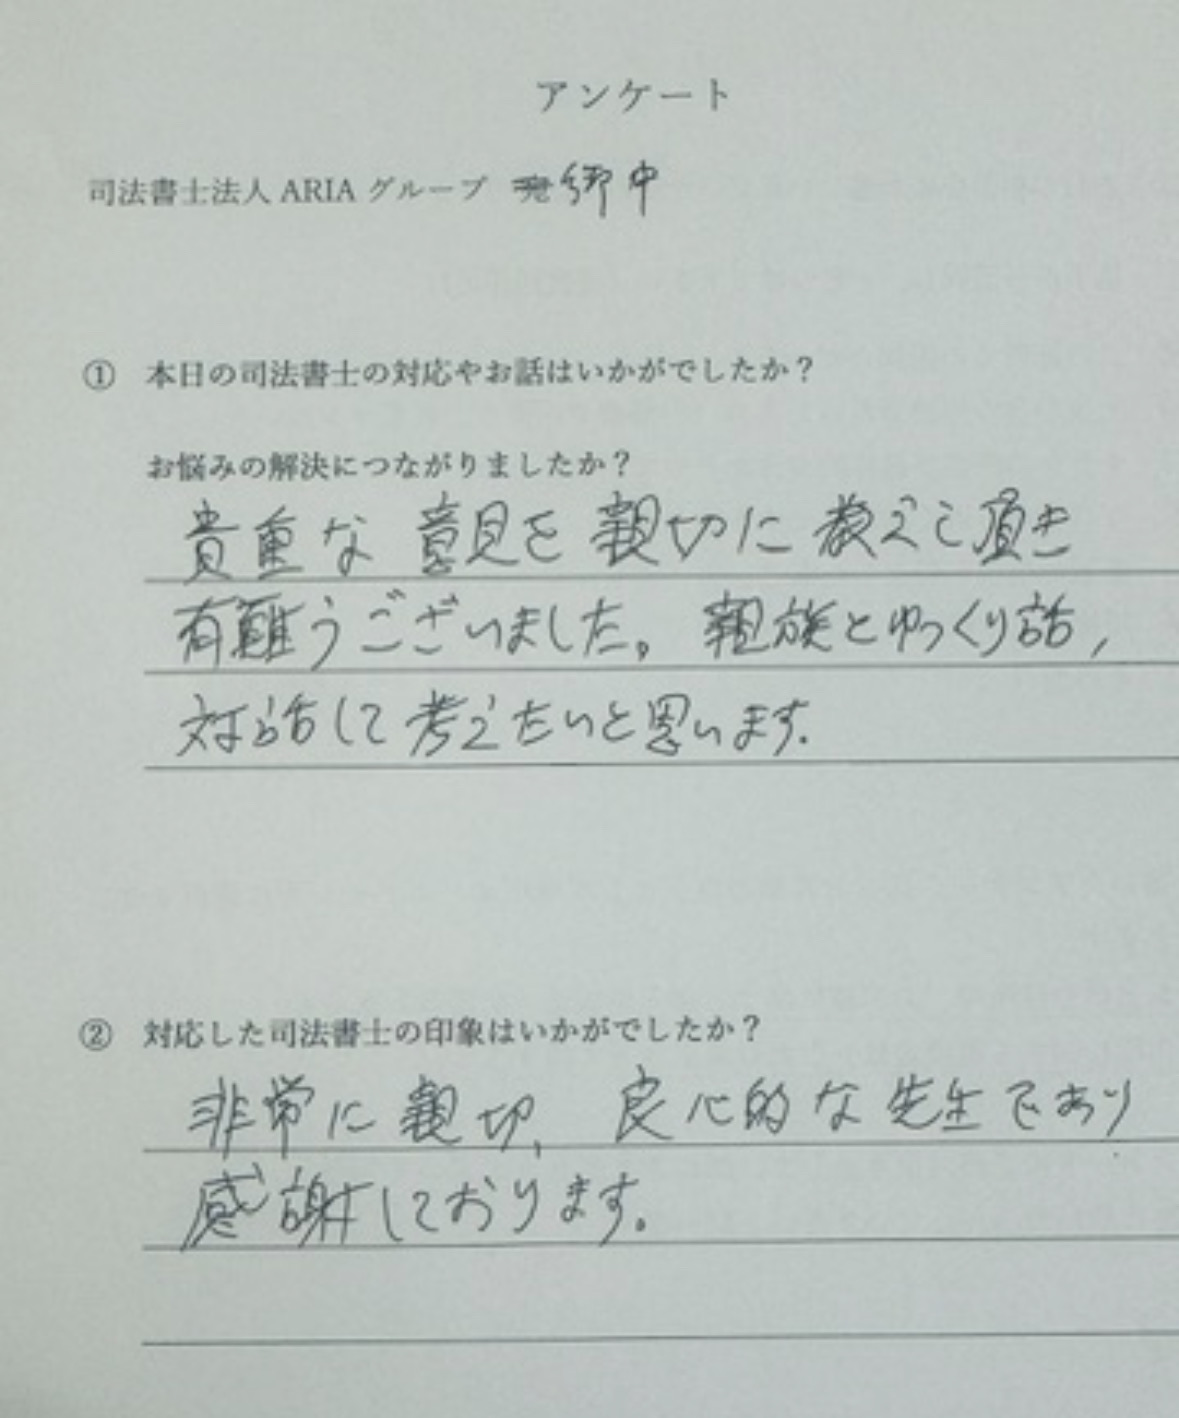 アンケート
司法書士法人 ARIA グループ 宛 御中
① 本日の司法書士の対応やお話はいかがでしたか？
お悩みの解決につながりましたか？
貴重な 意見を 親切に 教えて頂き
有難うございました。親族とゆっくり話,
対話して考えたいと思います.
② 対応した司法書士の印象はいかがでしたか？
非常に親切、良心的な先生であり
感謝しております。